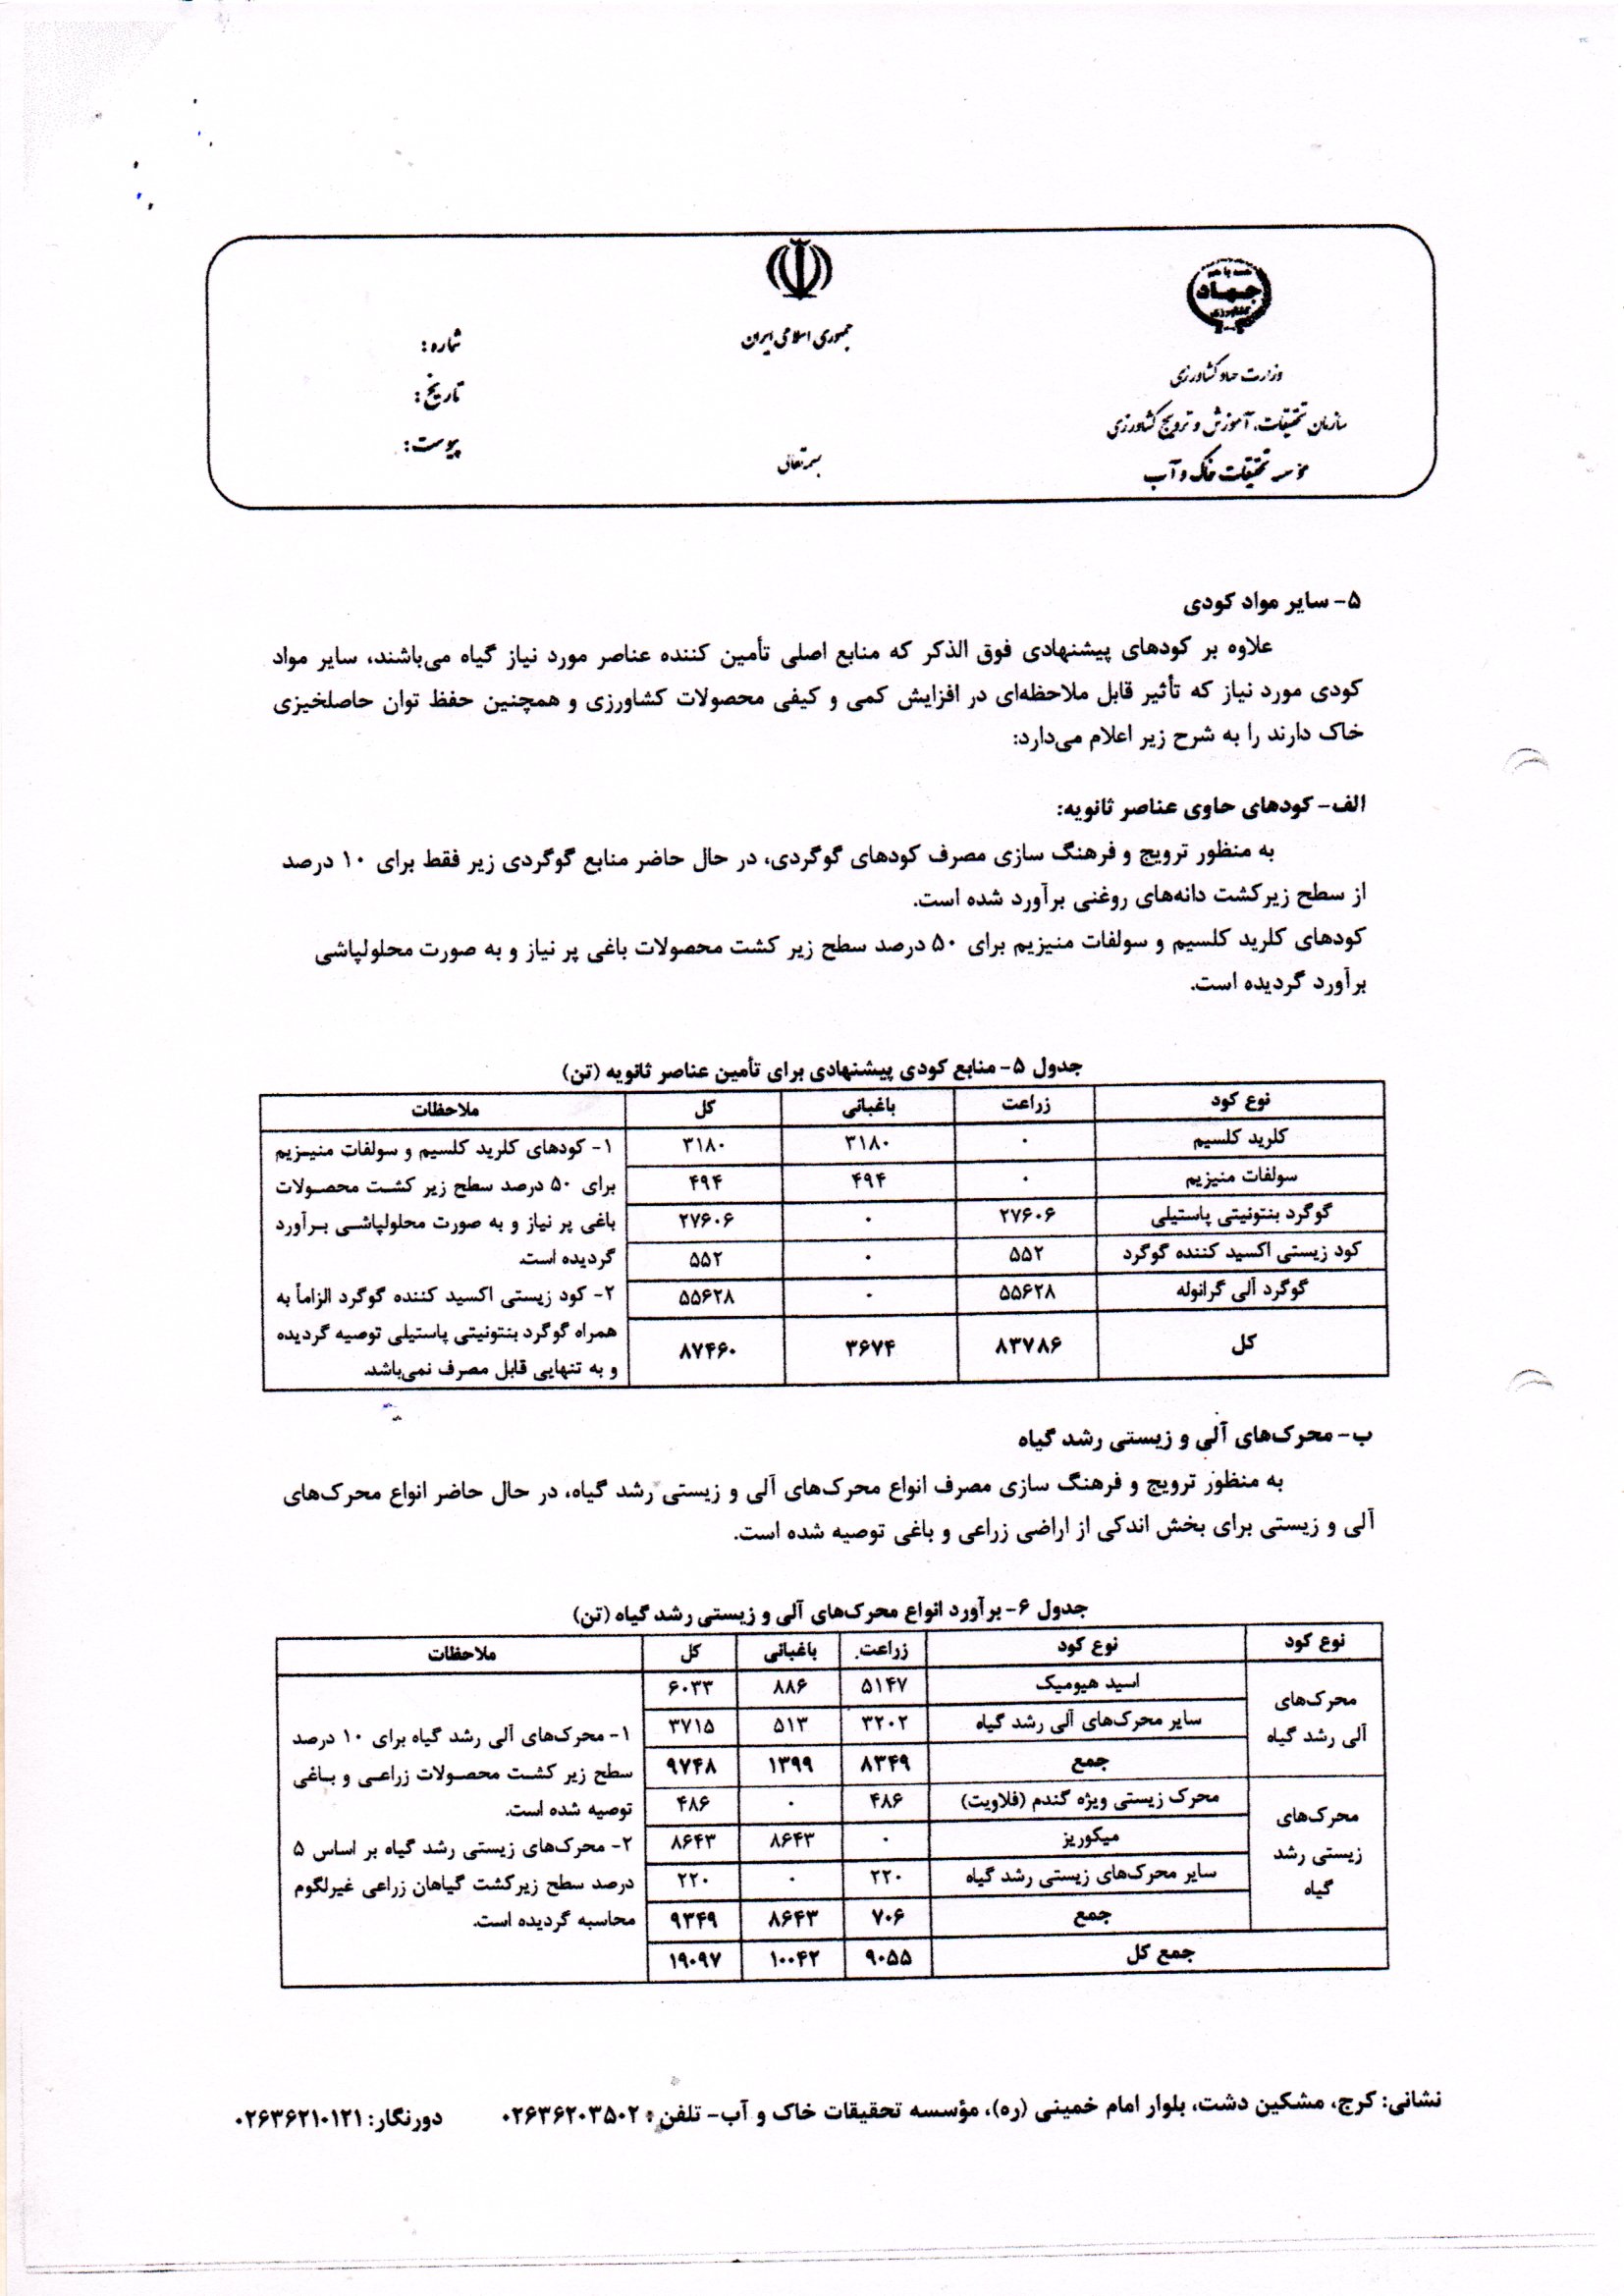 جهاد
جمهوری اسلامی ایران
وزارت جهاد کشاورزی
سازمان تحقیقات، آموزش و ترویج کشاورزی
مؤسسه تحقیقات خاک و آب
بسمه تعالی
شماره:
تاریخ:
پیوست:
۵- سایر مواد کودی
علاوه بر کودهای پیشنهادی فوق الذکر که منابع اصلی تأمین کننده عناصر مورد نیاز گیاه می‌باشند، سایر مواد
کودی مورد نیاز که تأثیر قابل ملاحظه‌ای در افزایش کمی و کیفی محصولات کشاورزی و همچنین حفظ توان حاصلخیزی
خاک دارند را به شرح زیر اعلام می‌دارد:
الف- کودهای حاوی عناصر ثانویه:
به منظور ترویج و فرهنگ سازی مصرف کودهای گوگردی، در حال حاضر منابع گوگردی زیر فقط برای ۱۰ درصد
از سطح زیرکشت دانه‌های روغنی برآورد شده است.
کودهای کلرید کلسیم و سولفات منیزیم برای ۵۰ درصد سطح زیر کشت محصولات باغی پر نیاز و به صورت محلولپاشی
برآورد گردیده است.
جدول ۵- منابع کودی پیشنهادی برای تأمین عناصر ثانویه (تن)
نوع کود زراعت باغبانی کل ملاحظات
کلرید کلسیم ۰ ۳۱۸۰ ۳۱۸۰
سولفات منیزیم ۰ ۴۹۴ ۴۹۴
گوگرد بنتونیتی پاستیلی ۲۷۶۰۶ ۰ ۲۷۶۰۶
کود زیستی اکسید کننده گوگرد ۵۵۲ ۰ ۵۵۲
گوگرد آلی گرانوله ۵۵۶۲۸ ۰ ۵۵۶۲۸
کل ۸۳۷۸۶ ۳۶۷۴ ۸۷۴۶۰
۱- کودهای کلرید کلسیم و سولفات منیزیم
برای ۵۰ درصد سطح زیر کشت محصولات
باغی پر نیاز و به صورت محلولپاشی برآورد
گردیده است.
۲- کود زیستی اکسید کننده گوگرد الزاماً به
همراه گوگرد بنتونیتی پاستیلی توصیه گردیده
و به تنهایی قابل مصرف نمی‌باشد.
ب- محرک‌های آلی و زیستی رشد گیاه
به منظور ترویج و فرهنگ سازی مصرف انواع محرک‌های آلی و زیستی رشد گیاه، در حال حاضر انواع محرک‌های
آلی و زیستی برای بخش اندکی از اراضی زراعی و باغی توصیه شده است.
جدول ۶- برآورد انواع محرک‌های آلی و زیستی رشد گیاه (تن)
نوع کود نوع کود زراعت باغبانی کل ملاحظات
محرک‌های
آلی رشد گیاه
اسید هیومیک ۵۱۴۷ ۸۸۶ ۶۰۳۳
سایر محرک‌های آلی رشد گیاه ۳۲۰۲ ۵۱۳ ۳۷۱۵
جمع ۸۳۴۹ ۱۳۹۹ ۹۷۴۸
محرک‌های
زیستی رشد
گیاه
محرک زیستی ویژه گندم (فلاویت) ۴۸۶ ۰ ۴۸۶
میکوریز ۰ ۸۶۴۳ ۸۶۴۳
سایر محرک‌های زیستی رشد گیاه ۲۲۰ ۰ ۲۲۰
جمع ۷۰۶ ۸۶۴۳ ۹۳۴۹
جمع کل ۹۰۵۵ ۱۰۰۴۲ ۱۹۰۹۷
۱- محرک‌های آلی رشد گیاه برای ۱۰ درصد
سطح زیر کشت محصولات زراعی و باغی
توصیه شده است.
۲- محرک‌های زیستی رشد گیاه بر اساس ۵
درصد سطح زیرکشت گیاهان زراعی غیرلگوم
محاسبه گردیده است.
نشانی: کرج، مشکین دشت، بلوار امام خمینی (ره)، مؤسسه تحقیقات خاک و آب- تلفن: ۰۲۶۳۶۲۰۳۵۰۲ دورنگار: ۰۲۶۳۶۲۱۰۱۲۱